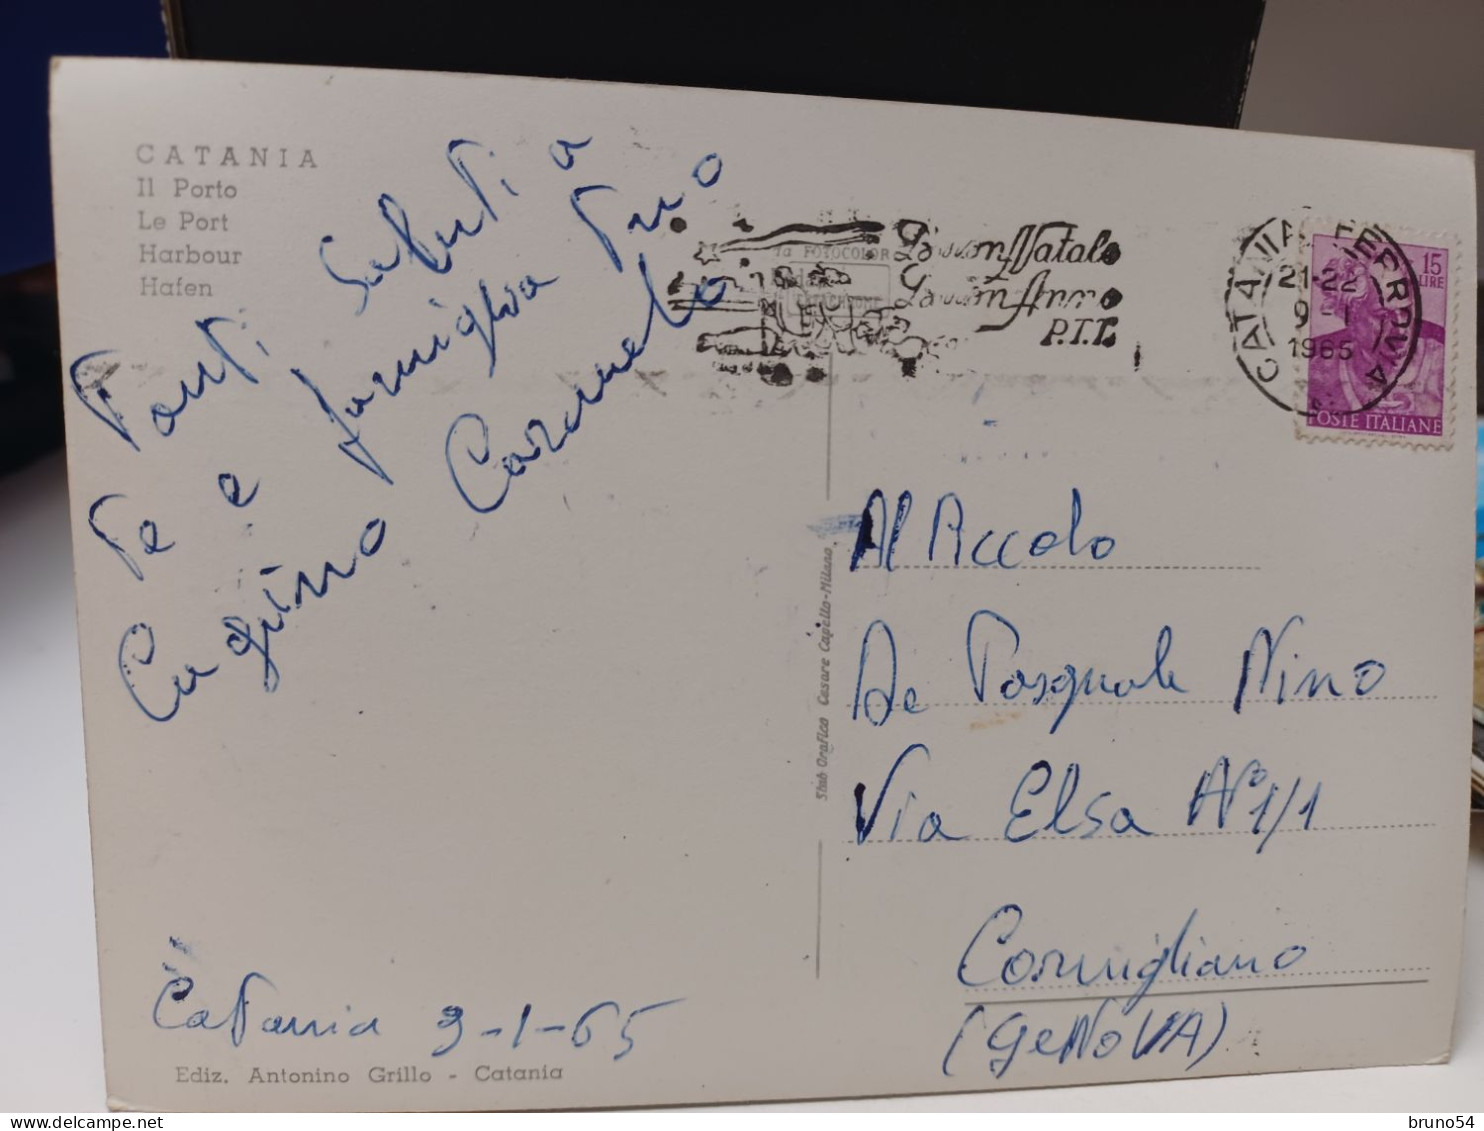 CATANIA
Il Porto
Le Port
Harbour
Hafen
Tanti Saluti a
Te e famiglia Tuo
Cugino Carmelo
Catania 9-1-65
Ediz. Antonino Grillo - Catania
Stab Grafico Cesare Capello-Milano
FOTOCOLOR
Buon Natale
Buon Anno
P.T.T.
CATANIA FERROVIA
21-22
9-1
1965
15
LIRE
POSTE ITALIANE
Al Piccolo
De Pasquale Nino
Via Elsa N° 1/1
Cornigliano
(GeNOVA)
bruno54